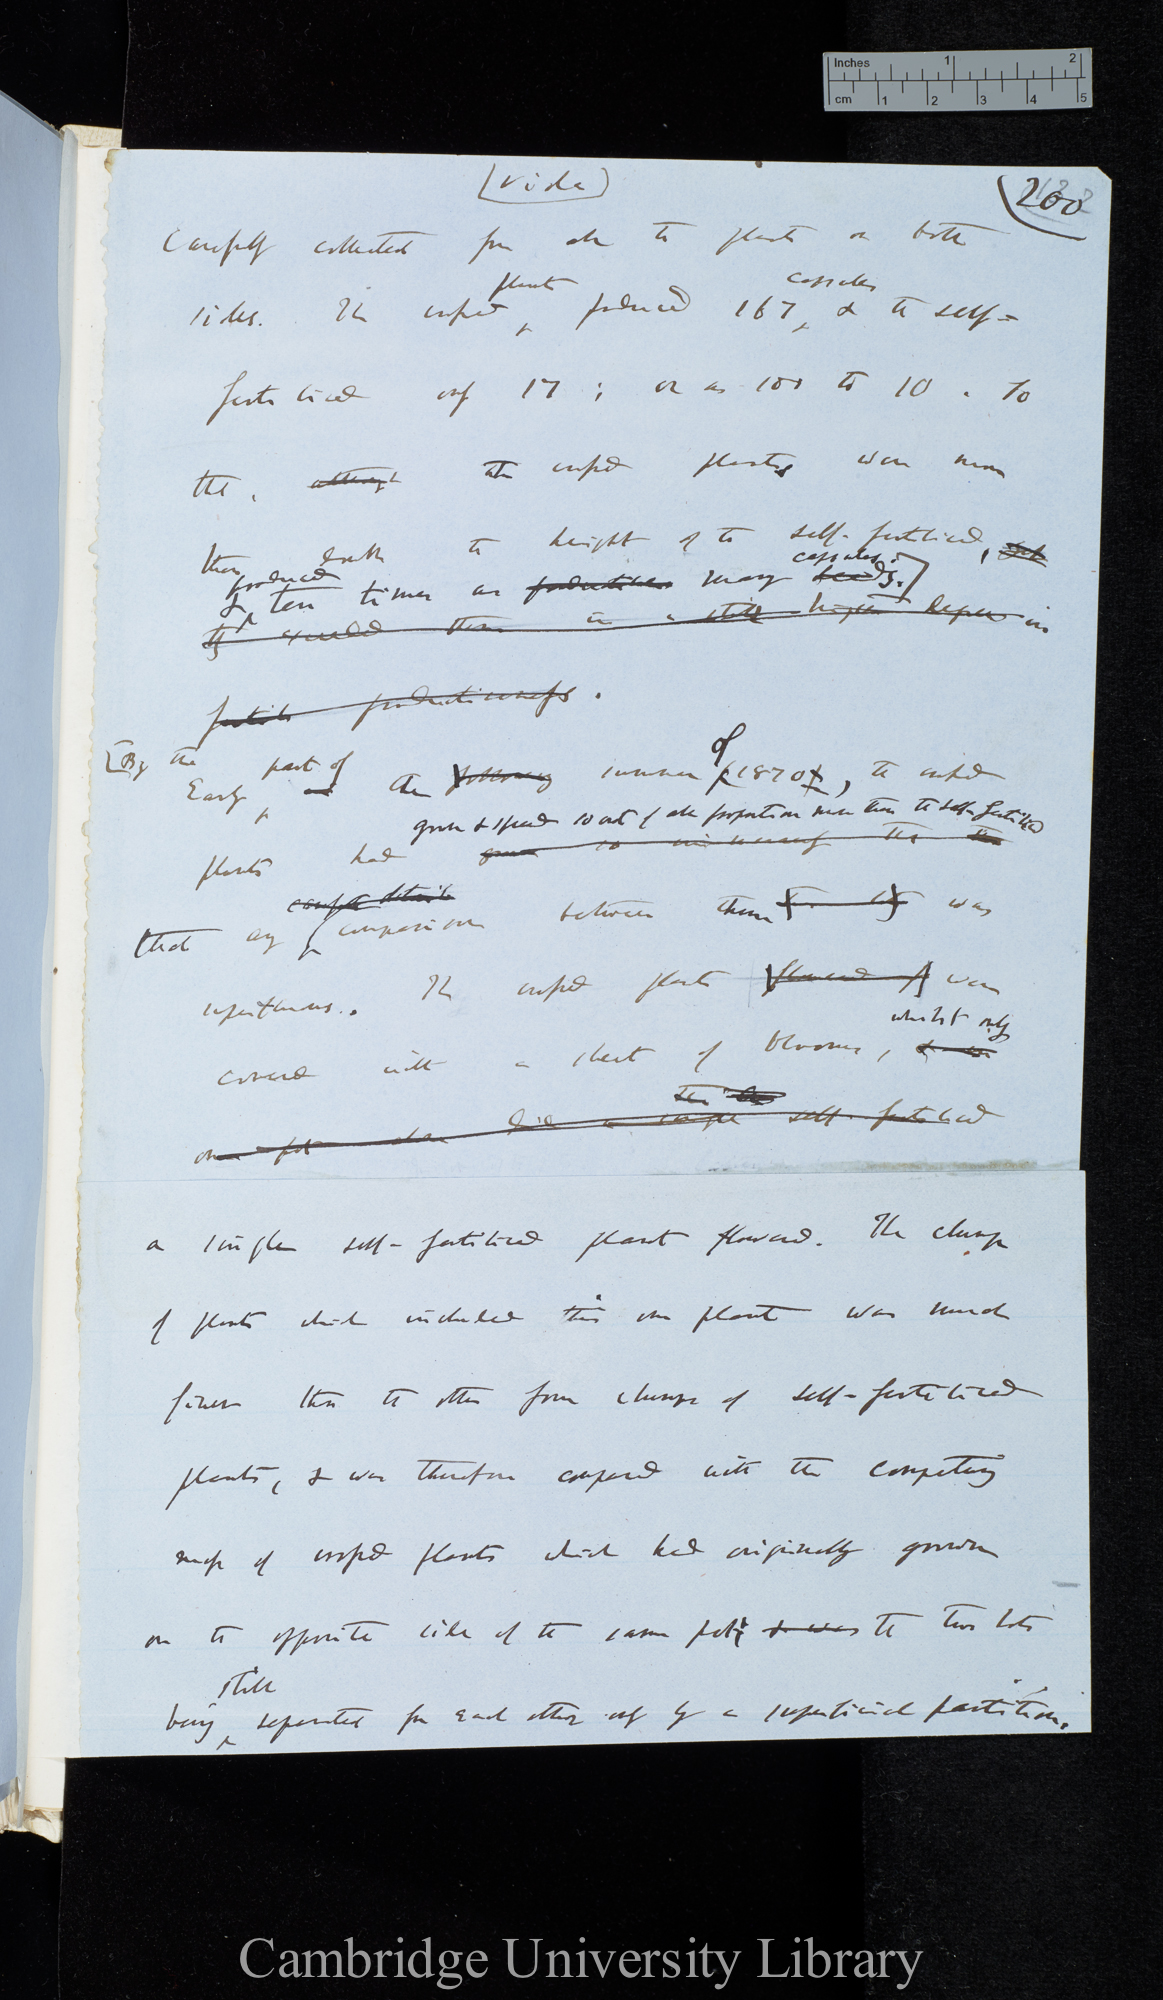 Inches 1 2
cm 1 2 3 4 5
(Viola)
200
Carefully collected from all the plants on both
plants capsules
sides. The crossed produced 167, & the self-
fertilised only 17; or as 100 to 10. So
that, although the crossed plants were more
than double the height of the self-fertilised, yet
produced capsules
& ten times as productive many seeds.]
they exceeded them in a still higher degree in
fertile productiveness.
[By the part of of
Early in the following summer (1870), the crossed
grown & spread so out of all proportion more than the self-fertilised
plants had grown so immensely that the
careful details
that any comparison between them was
superfluous. The crossed plants flowered were
whilst only
covered with a sheet of bloom,
one pot alone did a single self-fertilised
a single self-fertilised plant flowered. The clump
of plants which included this one plant was much
finer than the other four clumps of self-fertilised
plants, & was therefore compared with the competing
mass of crossed plants which had originally grown
on the opposite side of the same pot; & was the two lots
still
being separated from each other only by a superficial partition.
Cambridge University Library